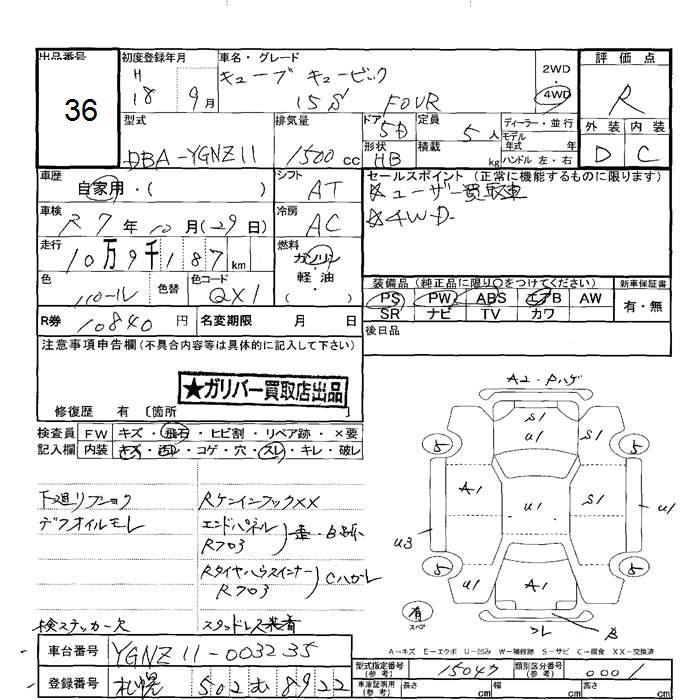 出品番号
36
初度登録年月
H
18 9月
車名・グレード
キューブ キュービック
15S FOUR
2WD
・
4WD
評価点
R
外装 内装
D C
型式
DBA-YGNZ11
排気量
1500cc
ドア 5D
形状 HB
定員 5人
積載 kg
ディーラー・並行
モデル
年式 年
ハンドル 左・右
車歴
自家用・( )
シフト
AT
セールスポイント (正常に機能するものに限ります)
☆ユーザー買取車
☆4WD
車検
R7年10月(29日)
冷房
AC
走行
10万9千187km
燃料
ガソリン
・
軽・油
色
パール
色替
色コード
QX1
装備品 (純正品に限り○をつけてください)
PS PW ABS エアB AW
SR ナビ TV カワ
新車保証書
有・無
R券 10840円
名変期限 月 日
後日品
注意事項申告欄(不具合内容等は具体的に記入して下さい)
★ガリバー買取店出品
修復歴 有 〔箇所 〕
検査員 FW キズ・飛石・ヒビ割・リペア跡・×要
記入欄 内装 キズ・汚レ・コゲ・穴・スレ・キレ・破レ
下廻リフショク
デフオイルモレ
RケンインフックXX
エンドパネル
R703
Rタイヤハウスインナー
R703
Cハガレ
検ステッカー欠
スタッドレス装着
A2・Pハゲ
S1
U1
S1
5
5
A1
U1
S1
U1
U3
5
5
U1
A1
U1
有
スペア
ワレ
B
A-キズ E-エクボ U-凹み W-補修跡 S-サビ C-腐食 XX-交換済
車台番号 YGNZ11-003235
登録番号 札幌 502 む 8922
型式指定番号
(参考)
15047
類別区分番号
(参考)
0001
車庫証明用
(参考)
長さ cm 幅 cm 高さ cm